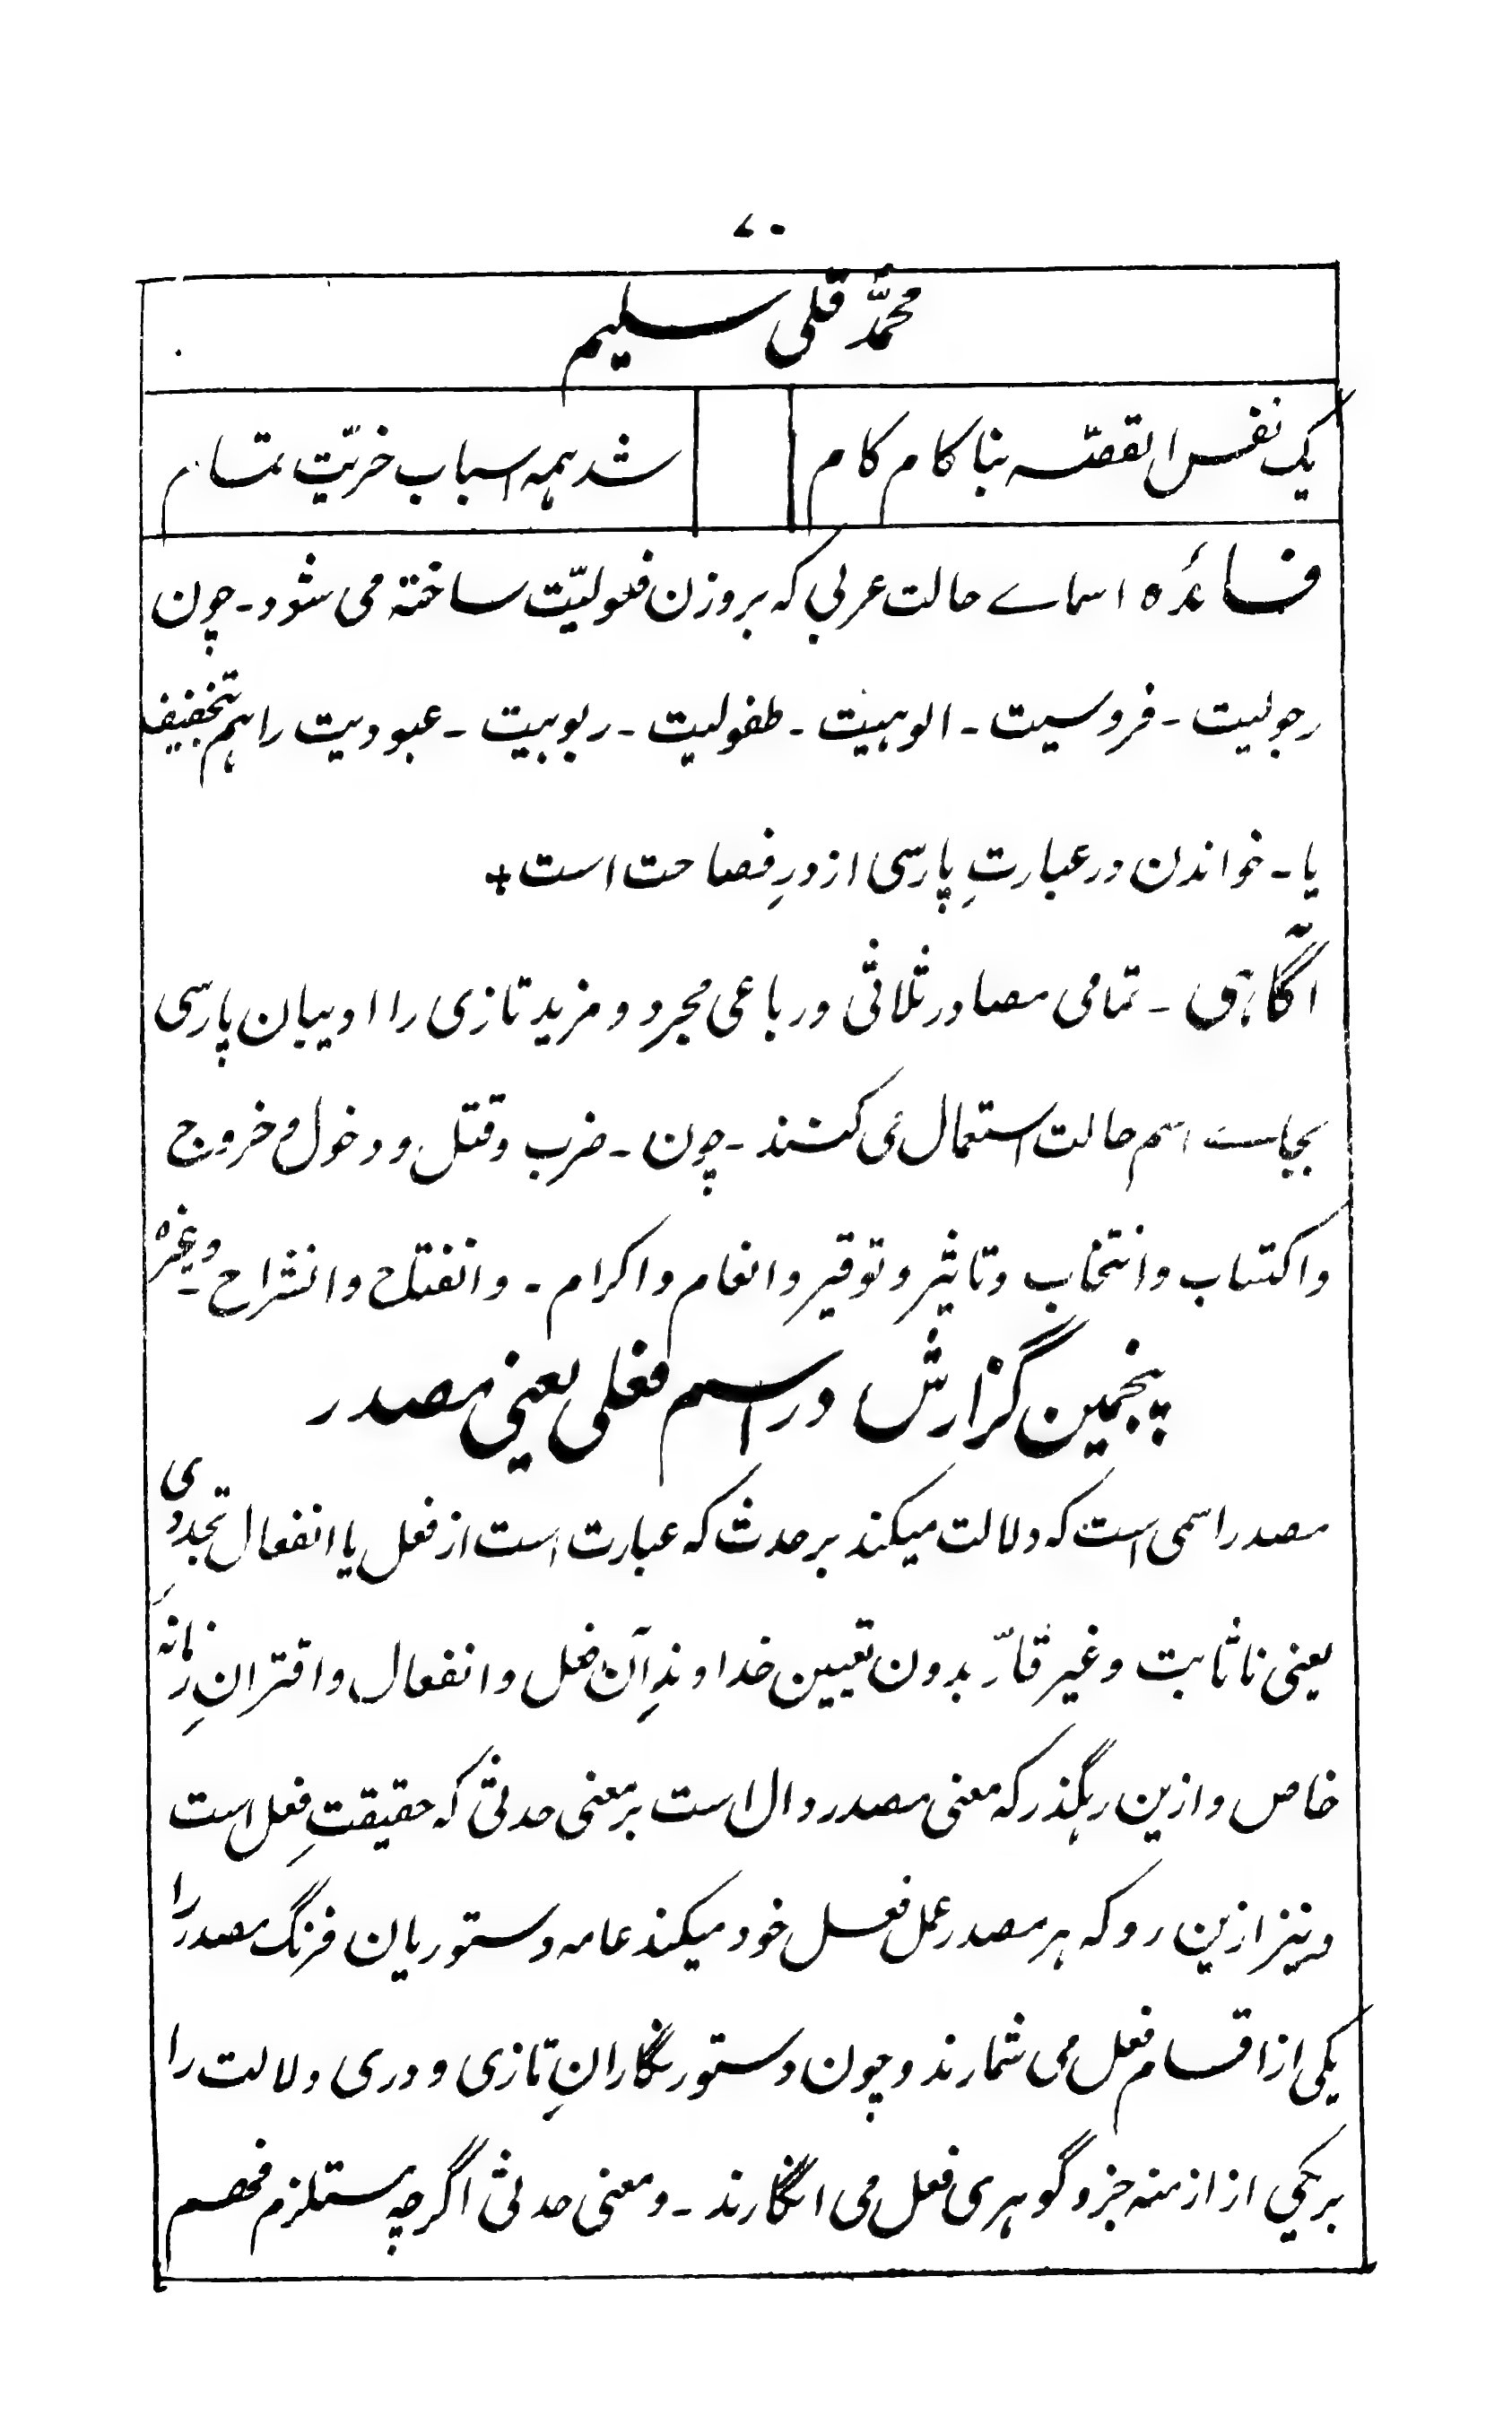 ۷۰
محمّد قلی سلیم
یک نفس القصّه بناکام کام
شد همه اسباب خریّت تمام
فائده اسماے حالت عربی که بروزن فعولیّت ساخته می شود - چون
رجولیت - فروسیت - الوهیت - طفولیت - ربوبیت - عبودیت را هم بتخفیف
یا - خواندن در عبارتِ پارسی از درِ فصاحت است +
آگاهی - تمامی مصادر ثلاثی و رباعی مجرد و مزید تازی را ادیبان پارسی
بجاے اسم حالت استعمال می کنند - چون - ضرب و قتل و دخول و خروج
و اکتساب و انتخاب و تاثیر و توقیر و انعام و اکرام - و انفتاح و انشراح - وغیره
پنجمین گزارش در اسم فعلی یعنی مصدر
مصدر اسمی است که دلالت میکند بر حدث که عبارت است از فعل یا انفعال تجددی
یعنی نا ثابت و غیر قارّ بدون تعیین خداوندِ آن فعل و انفعال و اقترانِ زمانهٔ
خاص و ازین رهگذر که معنی مصدر دال است بر معنی حدثی که حقیقتِ فعل است
و نیز ازین رو که هر مصدر عمل فعل خود میکند عامه دستوریان فرنگ مصدر را
یکی از اقسام فعل می شمارند و چون دستور نگارانِ تازی و دری دلالت را
بر یکی از ازمنه جزو گوهری فعل می انگارند - و معنی حدثی اگرچه مستلزم فهم